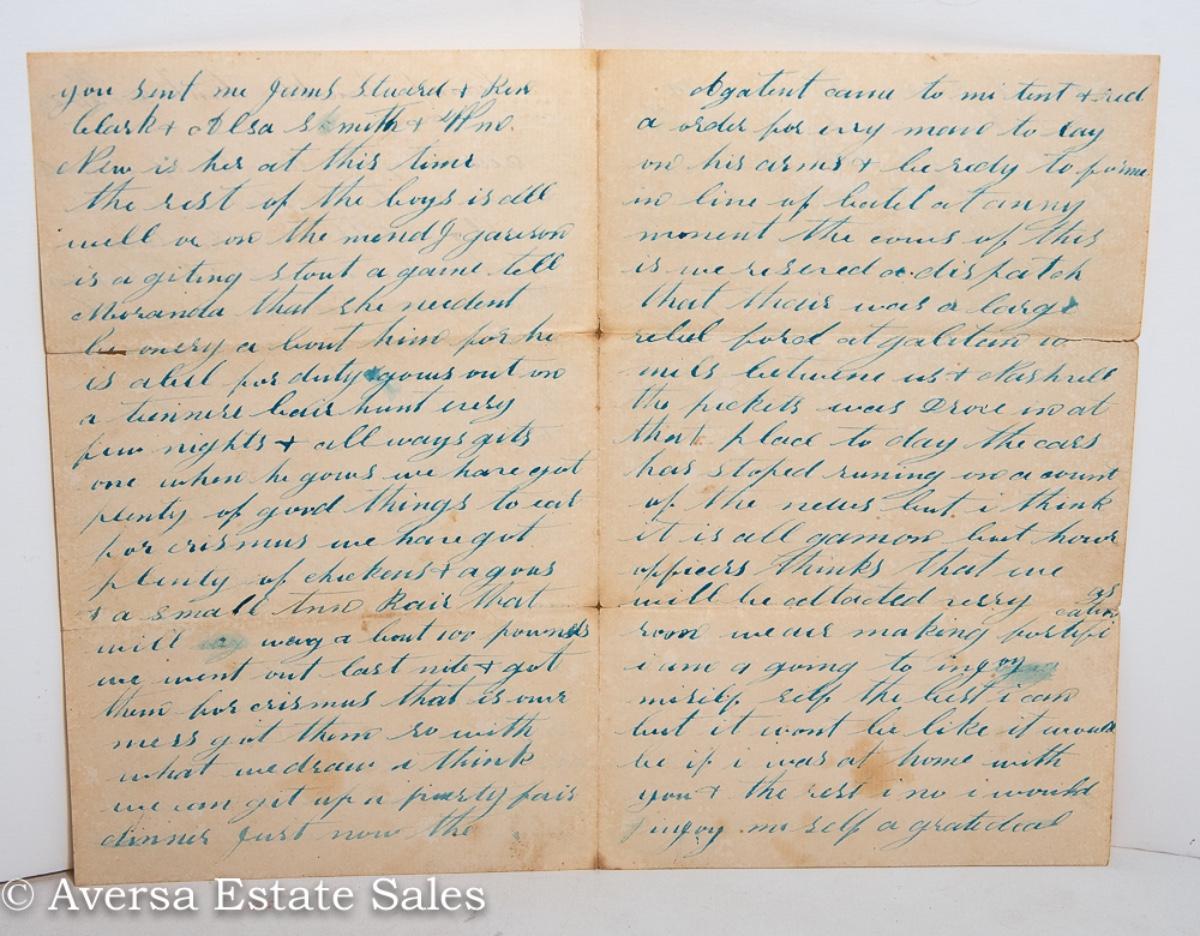 you sent me Jems Stuard + Ken
Clark + Alsa Smith + Wm.
New is her at this time
the rest of the boys is all
well or on the mend J garison
is a giting stout a game tell
Moranda that she neident
be onery a bout him for he
is abel for duty gows out on
a tennese hair hunt every
few nights + all ways gits
one when he gows we have got
plenty of good things to eat
for crismus we have got
plenty of chickens + a gous
+ a small tnn hair that
will way a bout 100 pounds
we went out last nite + got
them for crismus that is our
mess got them so with
what we draw i think
we can get up a purty fair
dinner Just now the
Agatent came to mi tent + red
a order for evry man to lay
on his arms + be redy to forme
in line of batel at anny
moment the cows of this
is we reseved a dispatch
that thair was a large
rebel ford at galitan 10
miles betwene us + Nashvell
the pickets was Drove in at
that place to day the cars
has stoped runing on a count
of the news but i think
it is all gamon but hour
officers thinks that we
will be attacted very
soon we are making fortifi cations
i am a going to ingoy
miself self the best i can
but it wont be like it would
be if i was at home with
you + the rest i no i would
ingoy miself a gratedeal
© Aversa Estate Sales